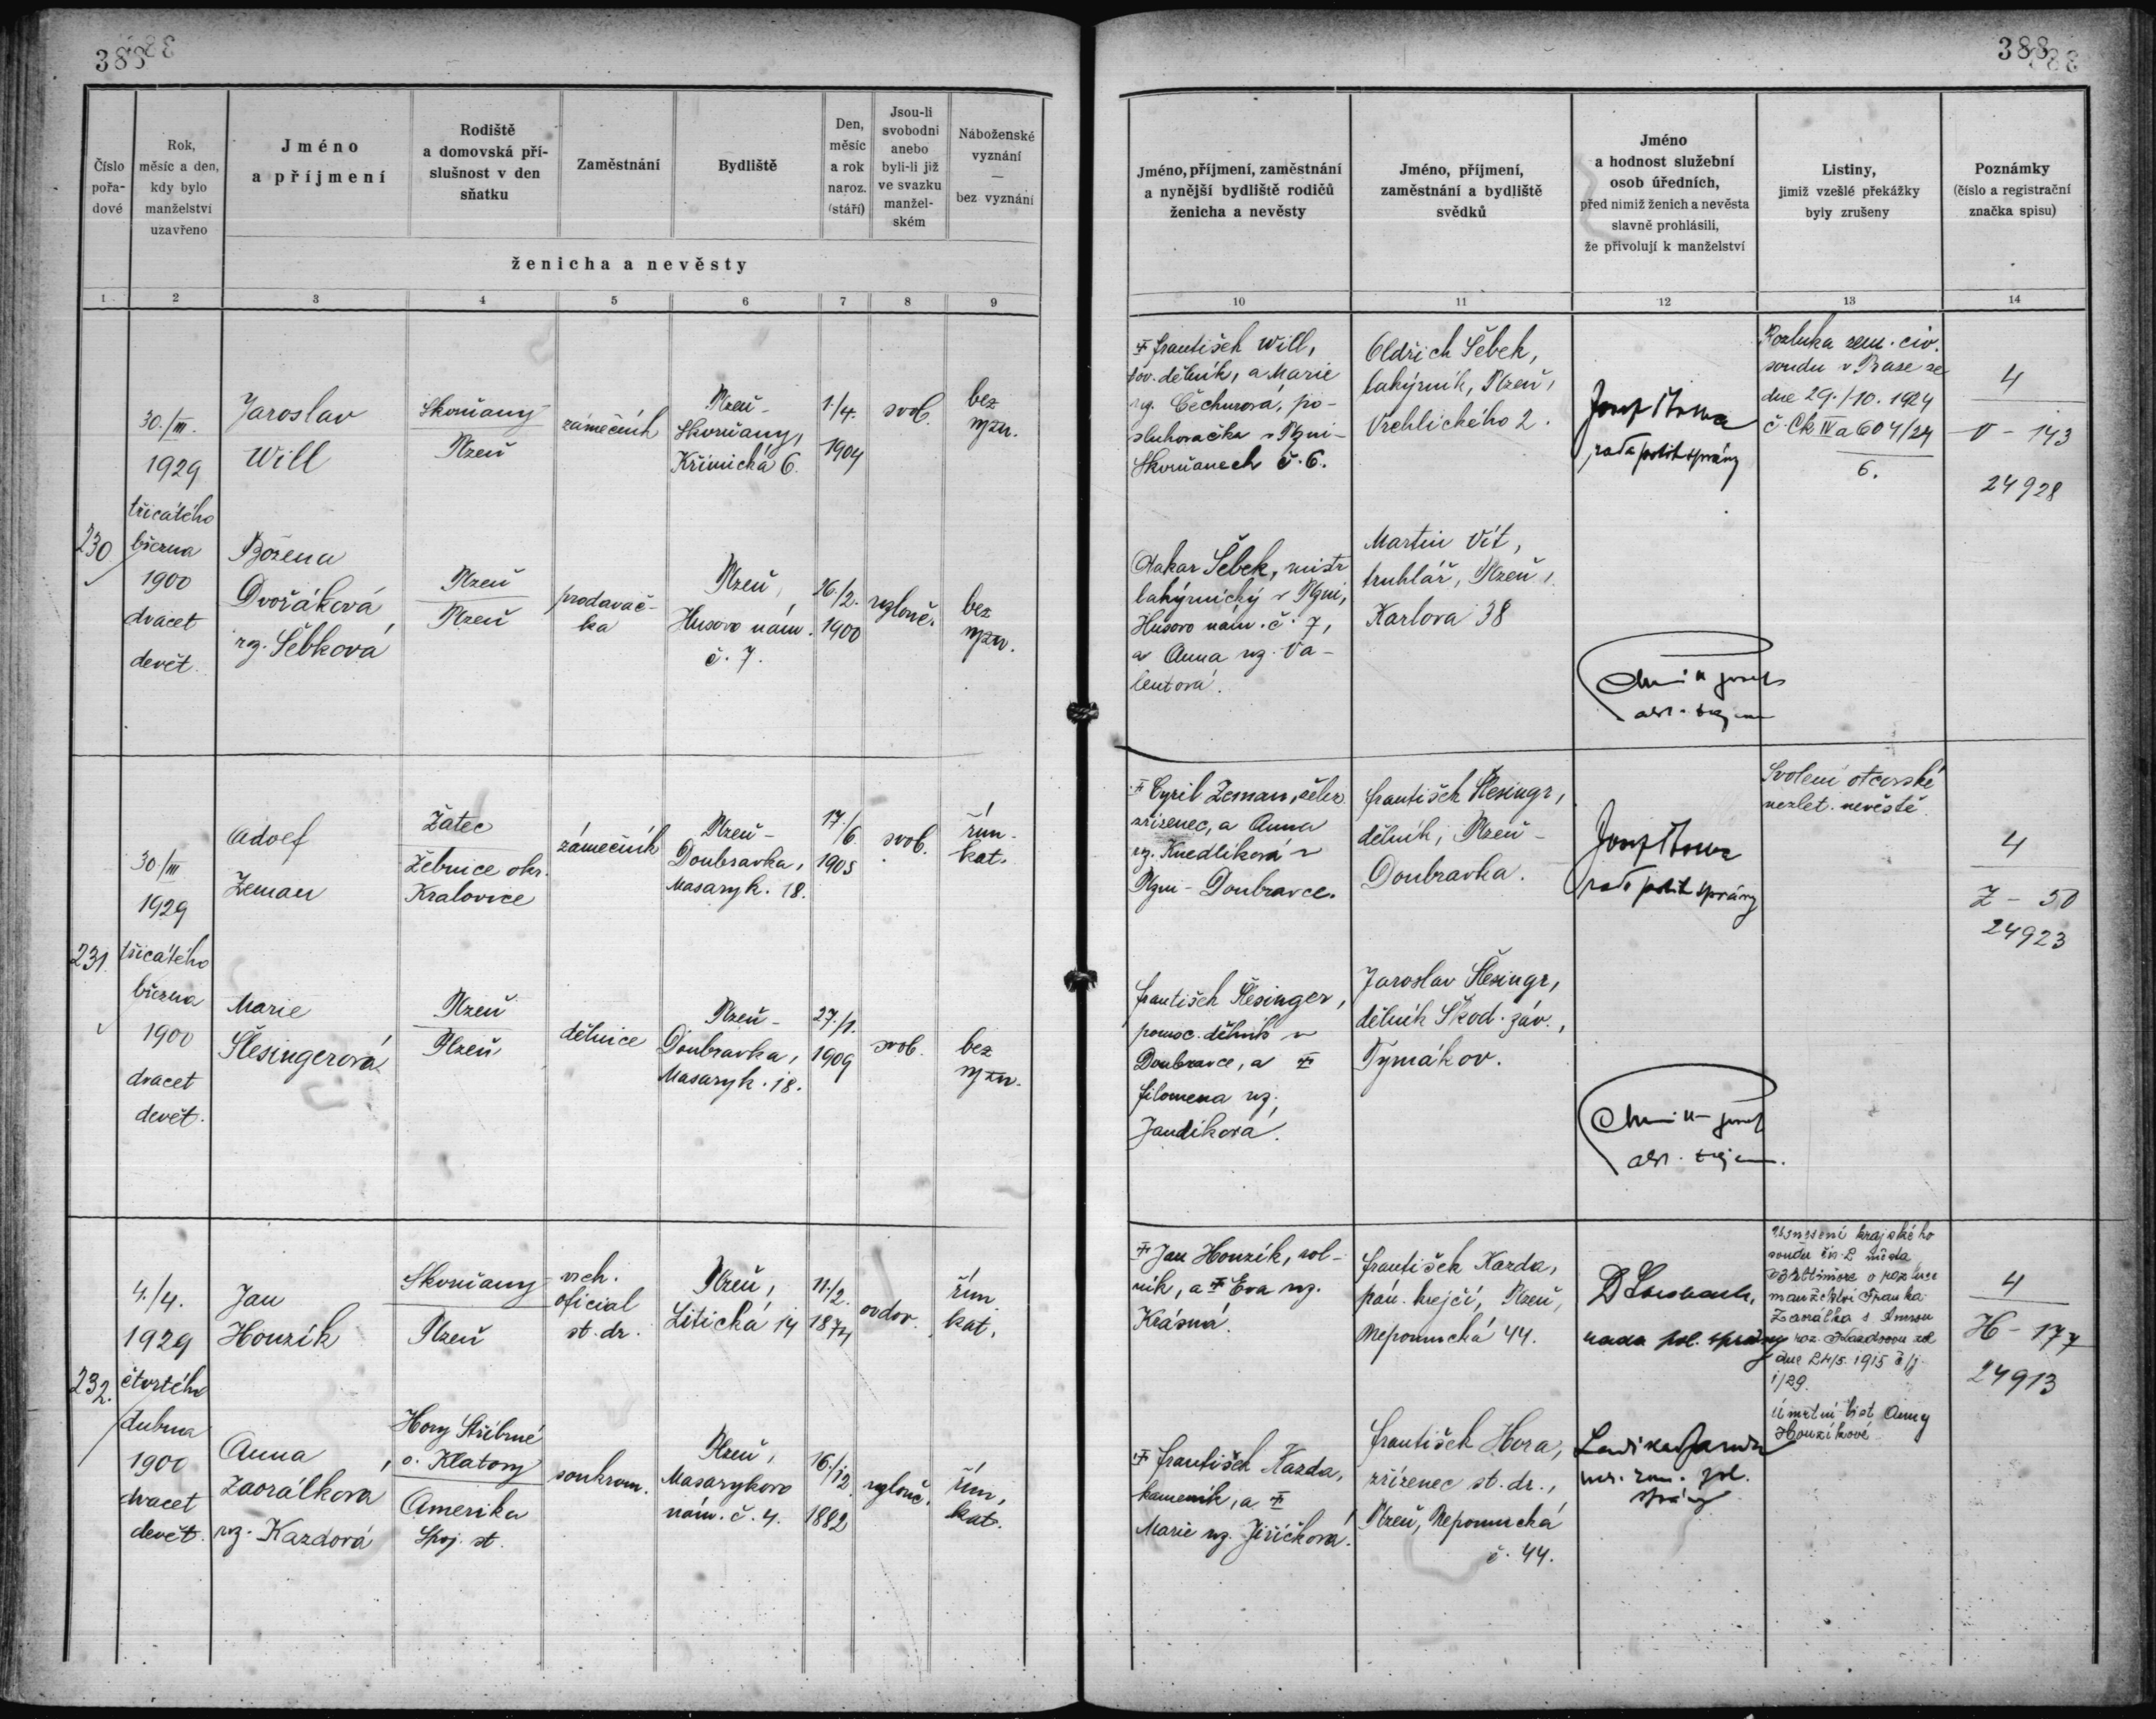 388
388
Číslo pořa-dové
Rok, měsíc a den, kdy bylo manželství uzavřeno
Jméno a příjmení
Rodiště a domovská pří-slušnost v den sňatku
Zaměstnání
Bydliště
Den, měsíc a rok naroz. (stáří)
Jsou-li svobodni anebo byli-li již ve svazku manžel-ském
Náboženské vyznání — bez vyznání
ženicha a nevěsty
Jméno, příjmení, zaměstnání a nynější bydliště rodičů ženicha a nevěsty
Jméno, příjmení, zaměstnání a bydliště svědků
Jméno a hodnost služební osob úředních, před nimiž ženich a nevěsta slavně prohlásili, že přivolují k manželství
Listiny, jimiž vzešlé překážky byly zrušeny
Poznámky (číslo a registrační značka spisu)
1 2 3 4 5 6 7 8 9 10 11 12 13 14
230
30./III.
1929
třicátého
března
1900
dvacet
devět.
Jaroslav
Will
Skvrňany
Plzeň
zámečník
Plzeň-
Skvrňany,
Křimická 6.
1./4.
1904
svob.
bez
vyzn.
Božena
Dvořáková
roz. Šebková
Plzeň
Plzeň
prodavač-
ka
Plzeň,
Husovo nám.
č. 7.
26./2.
1900
rozlouč.
bez
vyzn.
František Will,
tov. dělník, a Marie
roz. Čechurová, po-
sluhovačka v Plzni-
Skvrňanech č. 6.
Otakar Šebek, mistr
lahýrnický v Plzni,
Husovo nám. č. 7,
a Anna roz. Va-
lentová.
Oldřich Šebek,
lahýrník, Plzeň,
Vrchlického 2.
Martin Vít,
truhlář, Plzeň,
Karlova 38
Josef
rada polit správy
Rozluka zem. civ.
soudu v Praze ze
dne 29./10. 1924
č. Ck IV a 604/24
6.
4
V - 143
24928
231.
30/III
1929
třicátého
března
1900
dvacet
devět.
Adolf
Zeman
Žatec
Žebnice okr.
Kralovice
zámečník
Plzeň-
Doubravka,
Masaryk. 18.
17./6.
1905
svob.
řím.
kat.
Marie
Šlesingerová
Plzeň
Plzeň
dělnice
Plzeň-
Doubravka,
Masaryk. 18.
27./1.
1909
svob.
bez
vyzn.
Cyril Zeman, želez.
zřízenec, a Anna
roz. Knedlíková v
Plzni-Doubravce.
František Šlesinger,
pomoc. dělník v
Doubravce, a
Filomena roz.
Jandíková.
František Šlesingr,
dělník, Plzeň-
Doubravka.
Jaroslav Šlesingr,
dělník Škod. záv.,
Tymákov.
Josef
rada polit správy
Svolení otcovské
nezlet. nevěstě.
4
Z - 50
24923
232.
4./4.
1929
čtvrtého
dubna
1900
dvacet
devět.
Jan
Houzík
Skvrňany
Plzeň
vrch.
oficial
st. dr.
Plzeň,
Litická 14
11./2.
1874
ovdov.
řím.
kat.
Anna
Zaorálková
roz. Kazdová
Hory Stříbrné
o. Klatovy
Amerika
Spoj. st.
soukrom.
Plzeň,
Masarykovo
nám. č. 4.
16./12.
1882
rozlouč.
řím.
kat.
Jan Houzík, rol-
ník, a Eva roz.
Krásná.
František Kazda,
kameník, a
Marie roz. Jiříčková.
František Kazda,
pán. krejčí, Plzeň,
Nepomucká 44.
František Hora,
zřízenec st. dr.,
Plzeň, Nepomucká
č. 44.
rada pol. správy
Usnesení krajského
soudu čís 2 města
Baltimore o rozluce
manželství Franka
Zaorálka s Annou
roz. Kazdovou ze
dne 24/5. 1915 č/j
1/29.
Úmrtní list Anny
Houzíkové
4
H - 177
24913